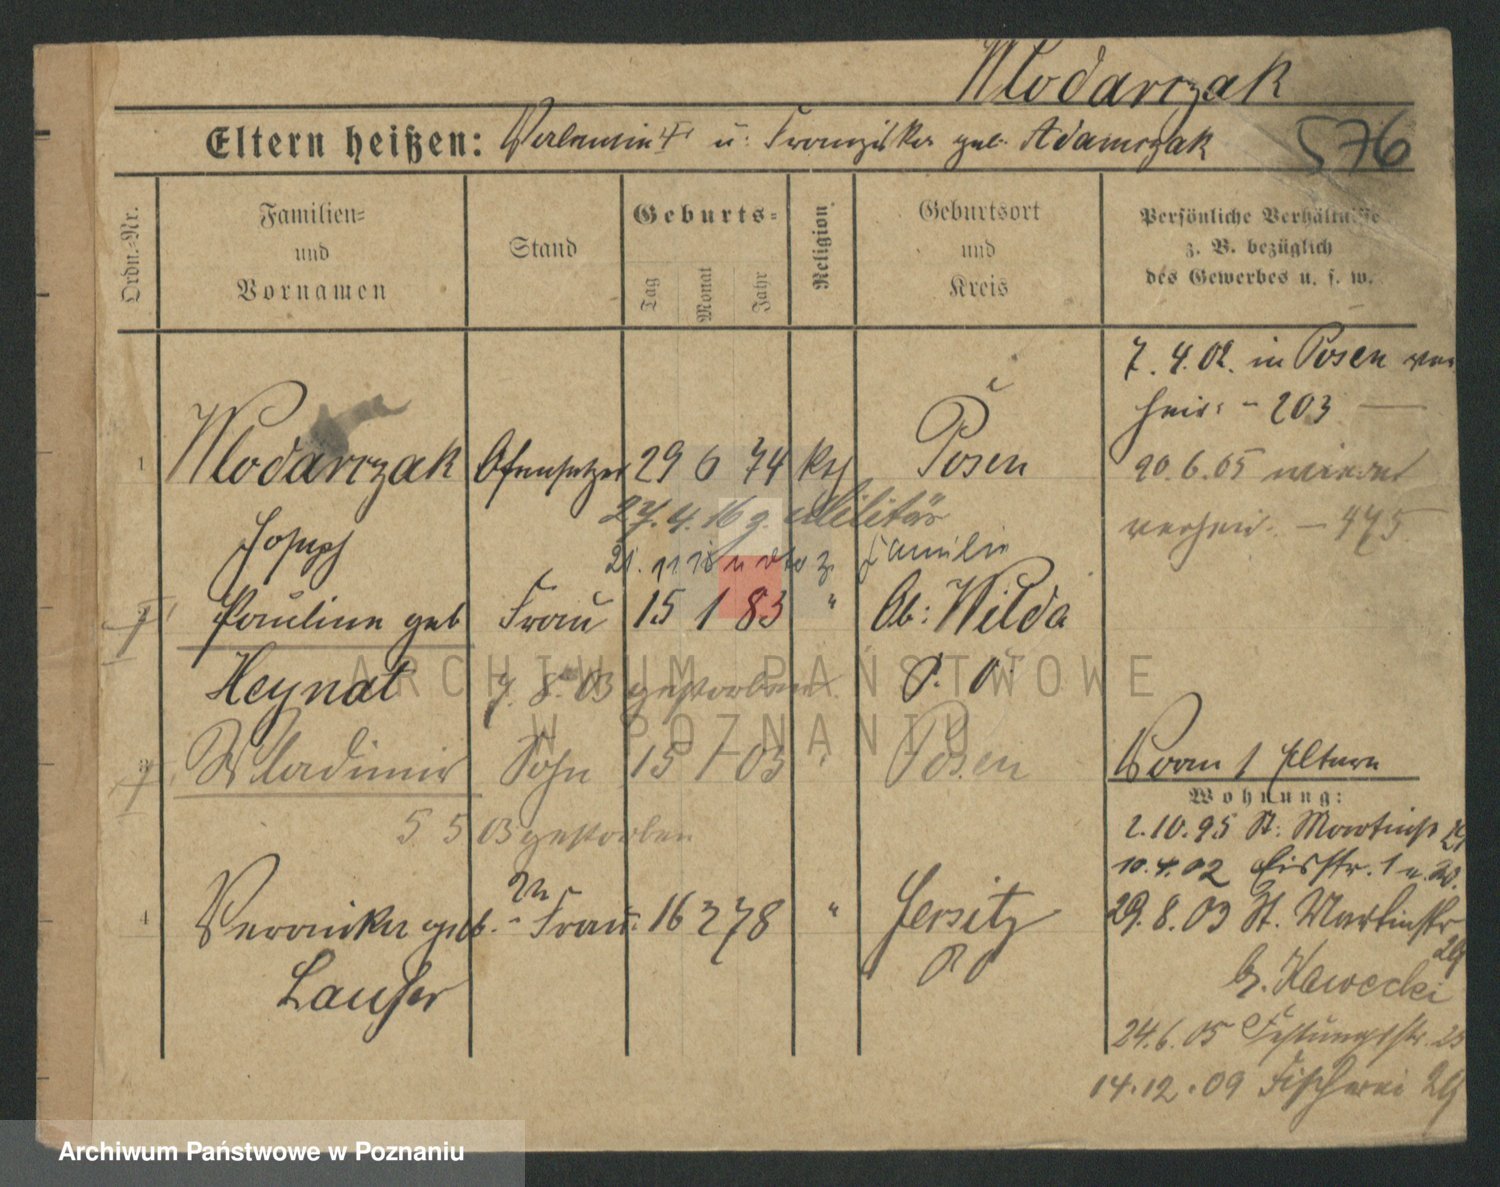 Wlodarczak
Eltern heißen: Valentin † u. Franziska geb. Adamczak
576
Ordn.-Nr.
Familien-
und
Vornamen
Stand
Geburts-
Tag
Monat
Jahr
Religion
Geburtsort
und
Kreis
Persönliche Verhältnisse
z. B. bezüglich
des Gewerbes u. s. w.
7. 4. 02. in Posen ver
heir. - 203
1 Wlodarczak Ofensetzer 29 6 74 kth Posen
20.6.05 wieder
verheir. - 475
27. 4. 16 z. Militär
Joseph
21. 11 18 z. Familie
† Pauline geb Frau 15 1 83 " Ob: Wilda
Heynat P. O.
7. 8. 03 gestorben
† Wladimir Sohn 15 1 03 " Posen
Vorm 1 Eltern
Wohnung:
5 5 03 gestorben
2.10.95 St. Martinstr 29
10.4.02 Eisstr. 1 u. W.
4 Veronika geb. Frau 16 2 78 " Jersitz
29.8.03 St. Martinstr
29
Lauser P O
b. Kawecki
24.6.05 Festungsstr. 25
14.12.09 Fischerei 29
ARCHIWUM PAŃSTWOWE
W POZNANIU
Archiwum Państwowe w Poznaniu